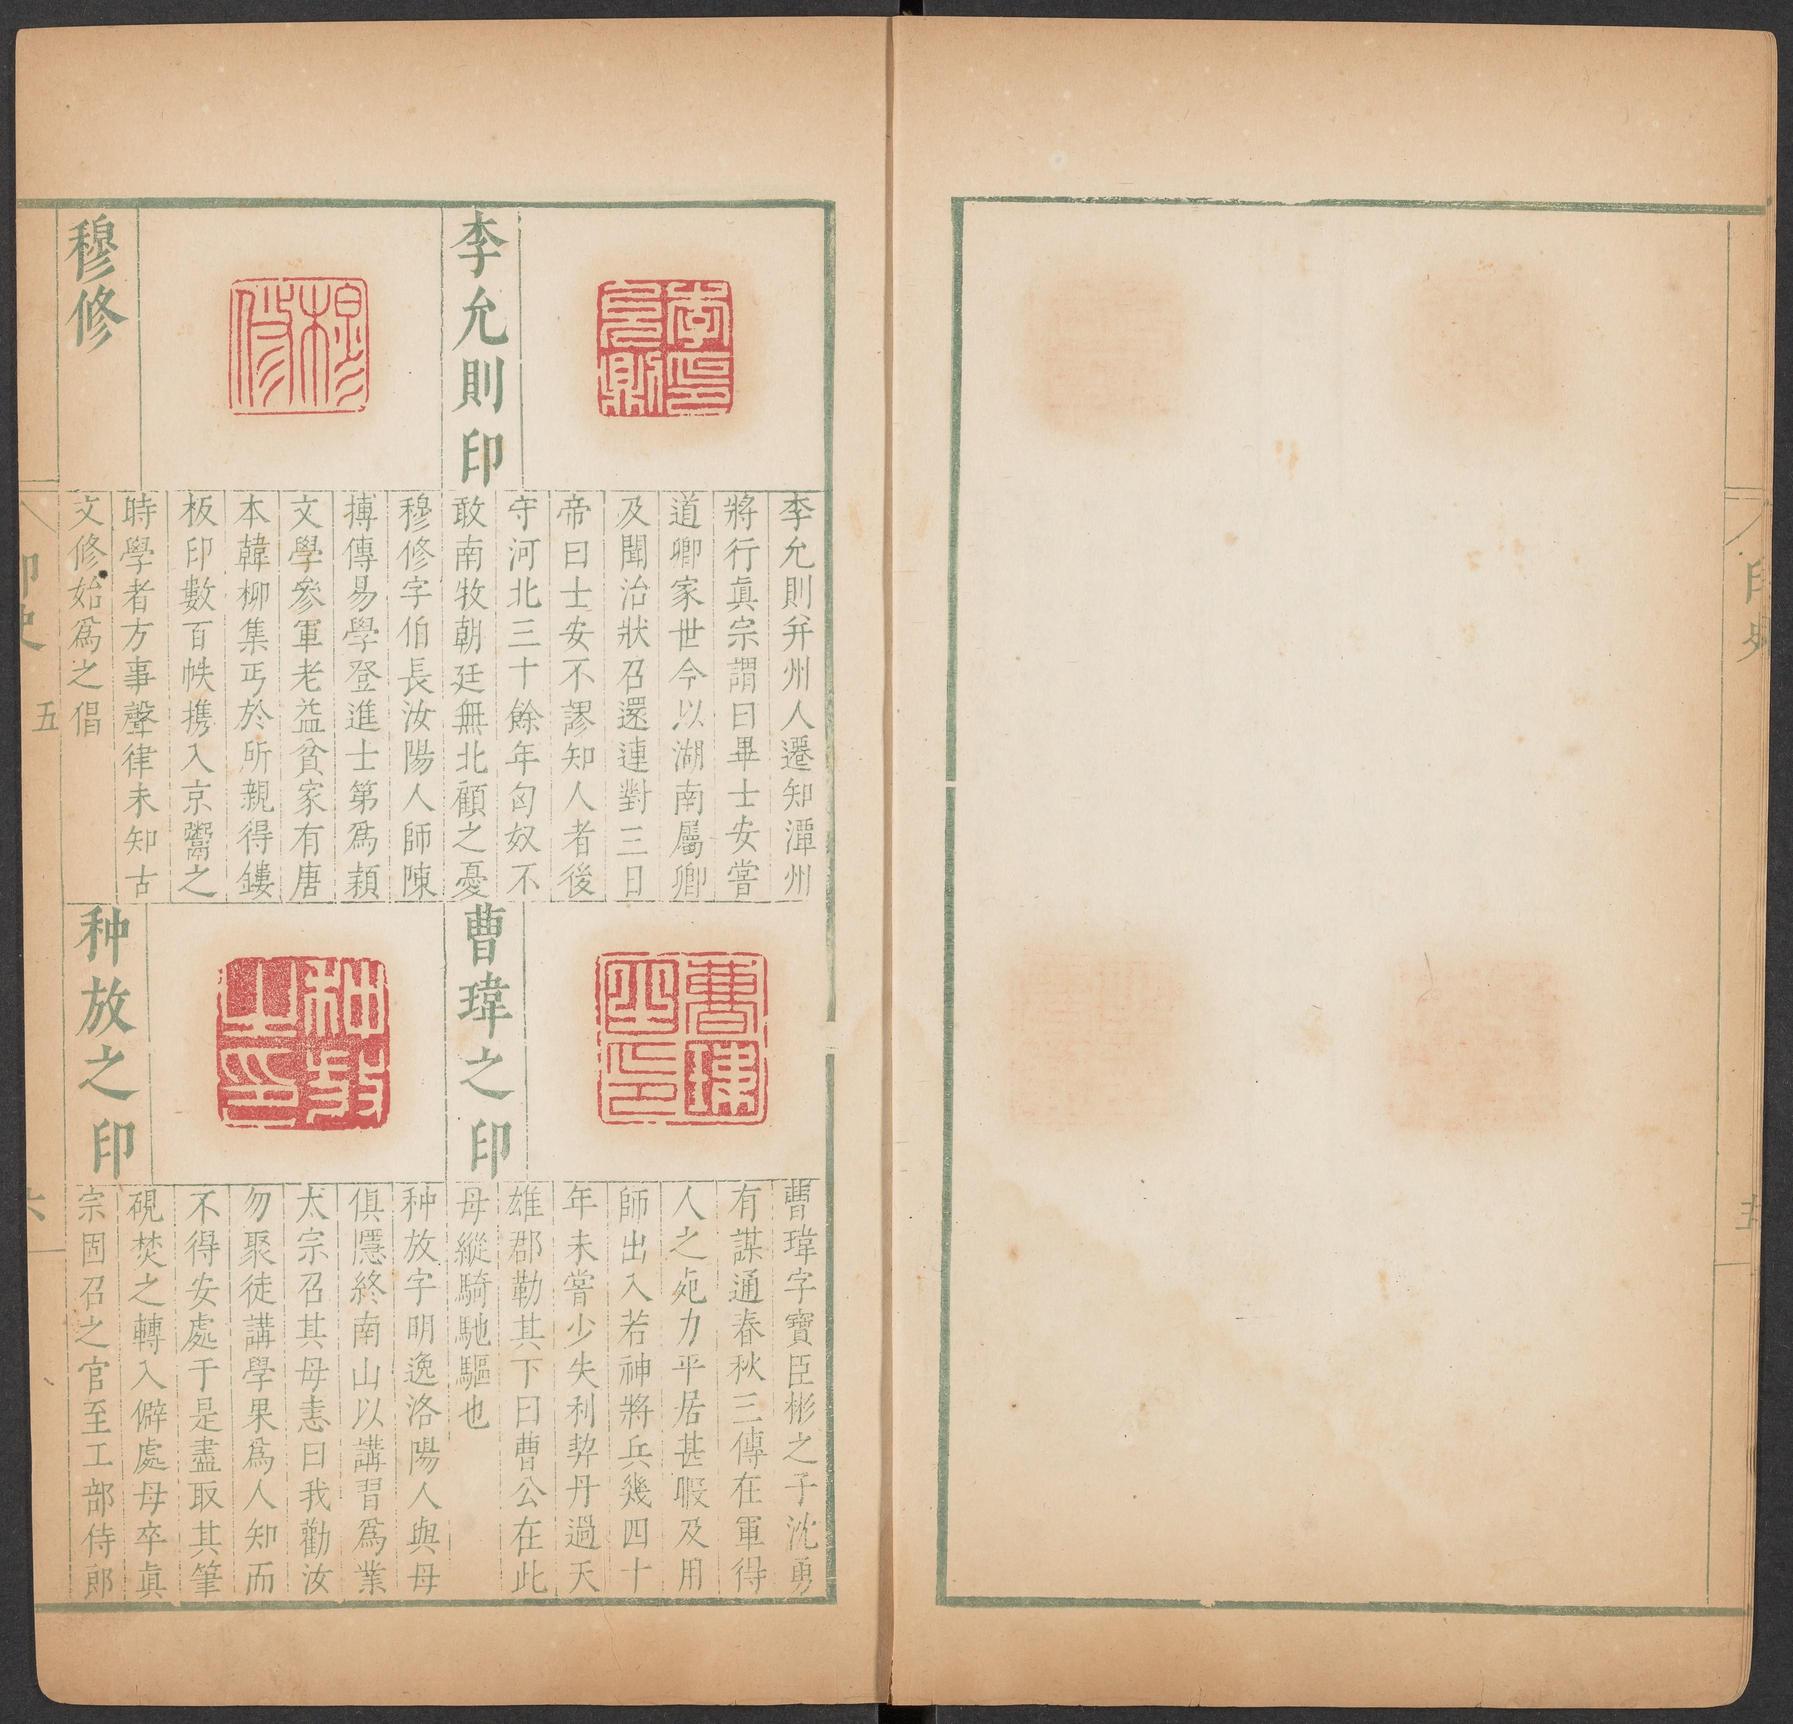 李允則印
李允則并州人遷知潭州
將行眞宗謂曰畢士安嘗
道卿家世今以湖南屬卿
及聞治狀召還連對三日
帝曰士安不謬知人者後
守河北三十餘年匈奴不
敢南牧朝廷無北顧之憂
穆修
穆修字伯長汝陽人師陳
摶傳易學登進士第爲潁
文學參軍老益貧家有唐
本韓柳集丐於所親得鏤
板印數百帙携入京鬻之
時學者方事聲律未知古
文修始爲之倡
曹瑋之印
曹瑋字寶臣彬之子沈勇
有謀通春秋三傳在軍得
人之死力平居甚暇及用
師出入若神將兵幾四十
年未嘗少失利契丹過天
雄郡勒其下曰曹公在此
毋縱騎馳驅也
种放之印
种放字明逸洛陽人與母
俱隱終南山以講習爲業
太宗召其母恚曰我勸汝
勿聚徒講學果爲人知而
不得安處于是盡取其筆
硯焚之轉入僻處母卒眞
宗固召之官至工部侍郎
印史
五
六